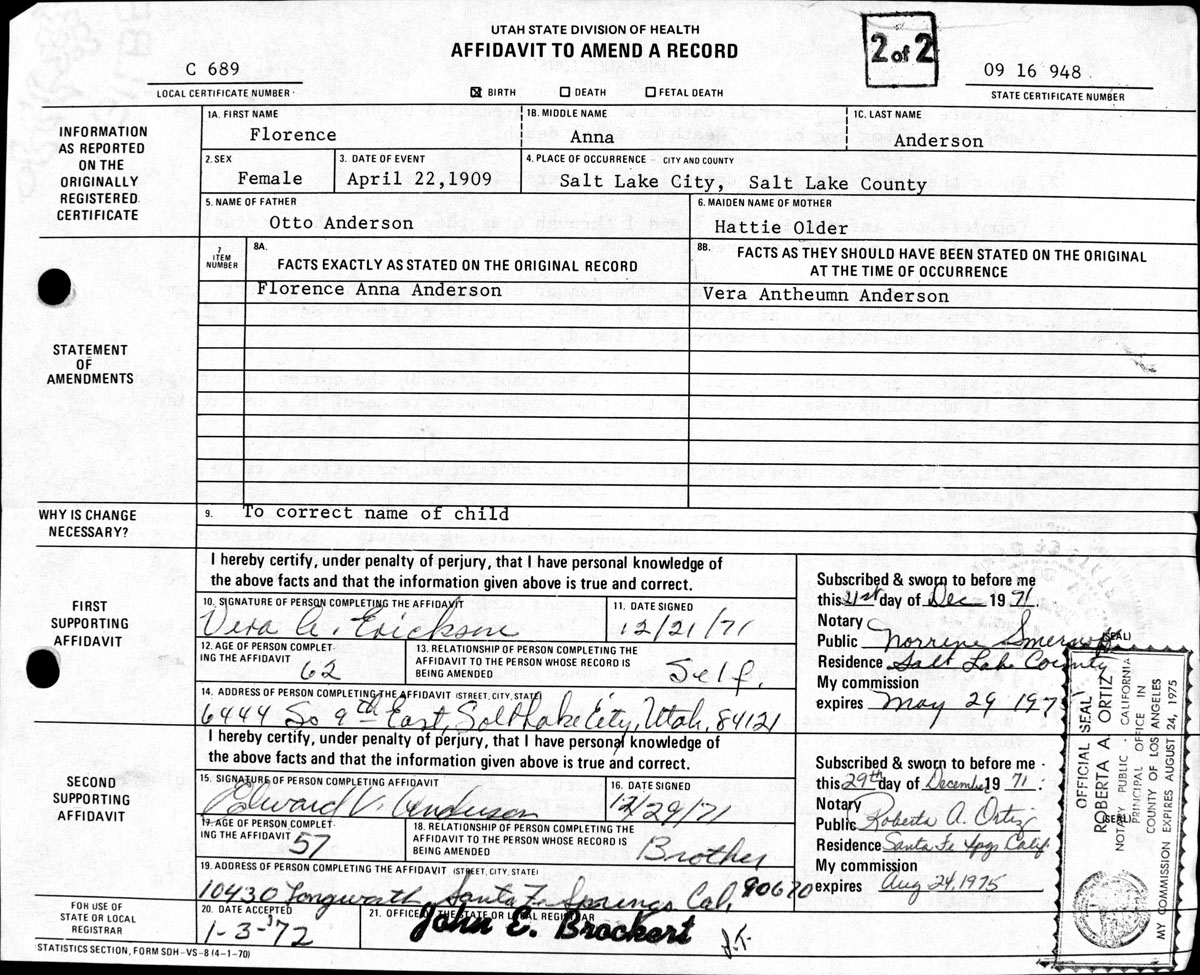 UTAH STATE DIVISION OF HEALTH
AFFIDAVIT TO AMEND A RECORD
2 of 2
C 689
LOCAL CERTIFICATE NUMBER
☒ BIRTH ☐ DEATH ☐ FETAL DEATH
09 16 948
STATE CERTIFICATE NUMBER
INFORMATION
AS REPORTED
ON THE
ORIGINALLY
REGISTERED
CERTIFICATE
1A. FIRST NAME
Florence
1B. MIDDLE NAME
Anna
1C. LAST NAME
Anderson
2. SEX
Female
3. DATE OF EVENT
April 22,1909
4. PLACE OF OCCURRENCE - CITY AND COUNTY
Salt Lake City, Salt Lake County
5. NAME OF FATHER
Otto Anderson
6. MAIDEN NAME OF MOTHER
Hattie Older
STATEMENT
OF
AMENDMENTS
7
ITEM
NUMBER
8A.
FACTS EXACTLY AS STATED ON THE ORIGINAL RECORD
8B.
FACTS AS THEY SHOULD HAVE BEEN STATED ON THE ORIGINAL
AT THE TIME OF OCCURRENCE
Florence Anna Anderson
Vera Antheumn Anderson
WHY IS CHANGE
NECESSARY?
9.
To correct name of child
FIRST
SUPPORTING
AFFIDAVIT
I hereby certify, under penalty of perjury, that I have personal knowledge of
the above facts and that the information given above is true and correct.
10. SIGNATURE OF PERSON COMPLETING THE AFFIDAVIT
Vera A. Erickson
11. DATE SIGNED
12/21/71
12. AGE OF PERSON COMPLET-
ING THE AFFIDAVIT
62
13. RELATIONSHIP OF PERSON COMPLETING THE
AFFIDAVIT TO THE PERSON WHOSE RECORD IS
BEING AMENDED
Self.
14. ADDRESS OF PERSON COMPLETING THE AFFIDAVIT (STREET, CITY, STATE)
6444 So 9th East, Salt Lake City, Utah, 84121
Subscribed & sworn to before me
this 21st day of Dec 1971.
Notary
Public Norrine
(SEAL)
Residence Salt Lake County
My commission
expires May 29 1975
SECOND
SUPPORTING
AFFIDAVIT
I hereby certify, under penalty of perjury, that I have personal knowledge of
the above facts and that the information given above is true and correct.
15. SIGNATURE OF PERSON COMPLETING AFFIDAVIT
Edward V. Anderson
16. DATE SIGNED
12/29/71
17. AGE OF PERSON COMPLET-
ING THE AFFIDAVIT
57
18. RELATIONSHIP OF PERSON COMPLETING THE
AFFIDAVIT TO THE PERSON WHOSE RECORD IS
BEING AMENDED
Brother
19. ADDRESS OF PERSON COMPLETING THE AFFIDAVIT (STREET, CITY, STATE)
10430 Longwrath, Santa Fe Springs Cal, 90670
Subscribed & sworn to before me
this 29th day of December 1971.
Notary
Public Roberta A. Ortiz
(SEAL)
Residence Santa Fe Spgs Calif.
My commission
expires Aug 24, 1975
OFFICIAL SEAL
ROBERTA A. ORTIZ
NOTARY PUBLIC - CALIFORNIA
PRINCIPAL OFFICE IN
COUNTY OF LOS ANGELES
MY COMMISSION EXPIRES AUGUST 24, 1975
FOR USE OF
STATE OR LOCAL
REGISTRAR
20. DATE ACCEPTED
1-3-72
21. OFFICE OF THE STATE OR LOCAL REGISTRAR
John E. Brockert
J.T.
STATISTICS SECTION, FORM SDH-VS-8 (4-1-70)